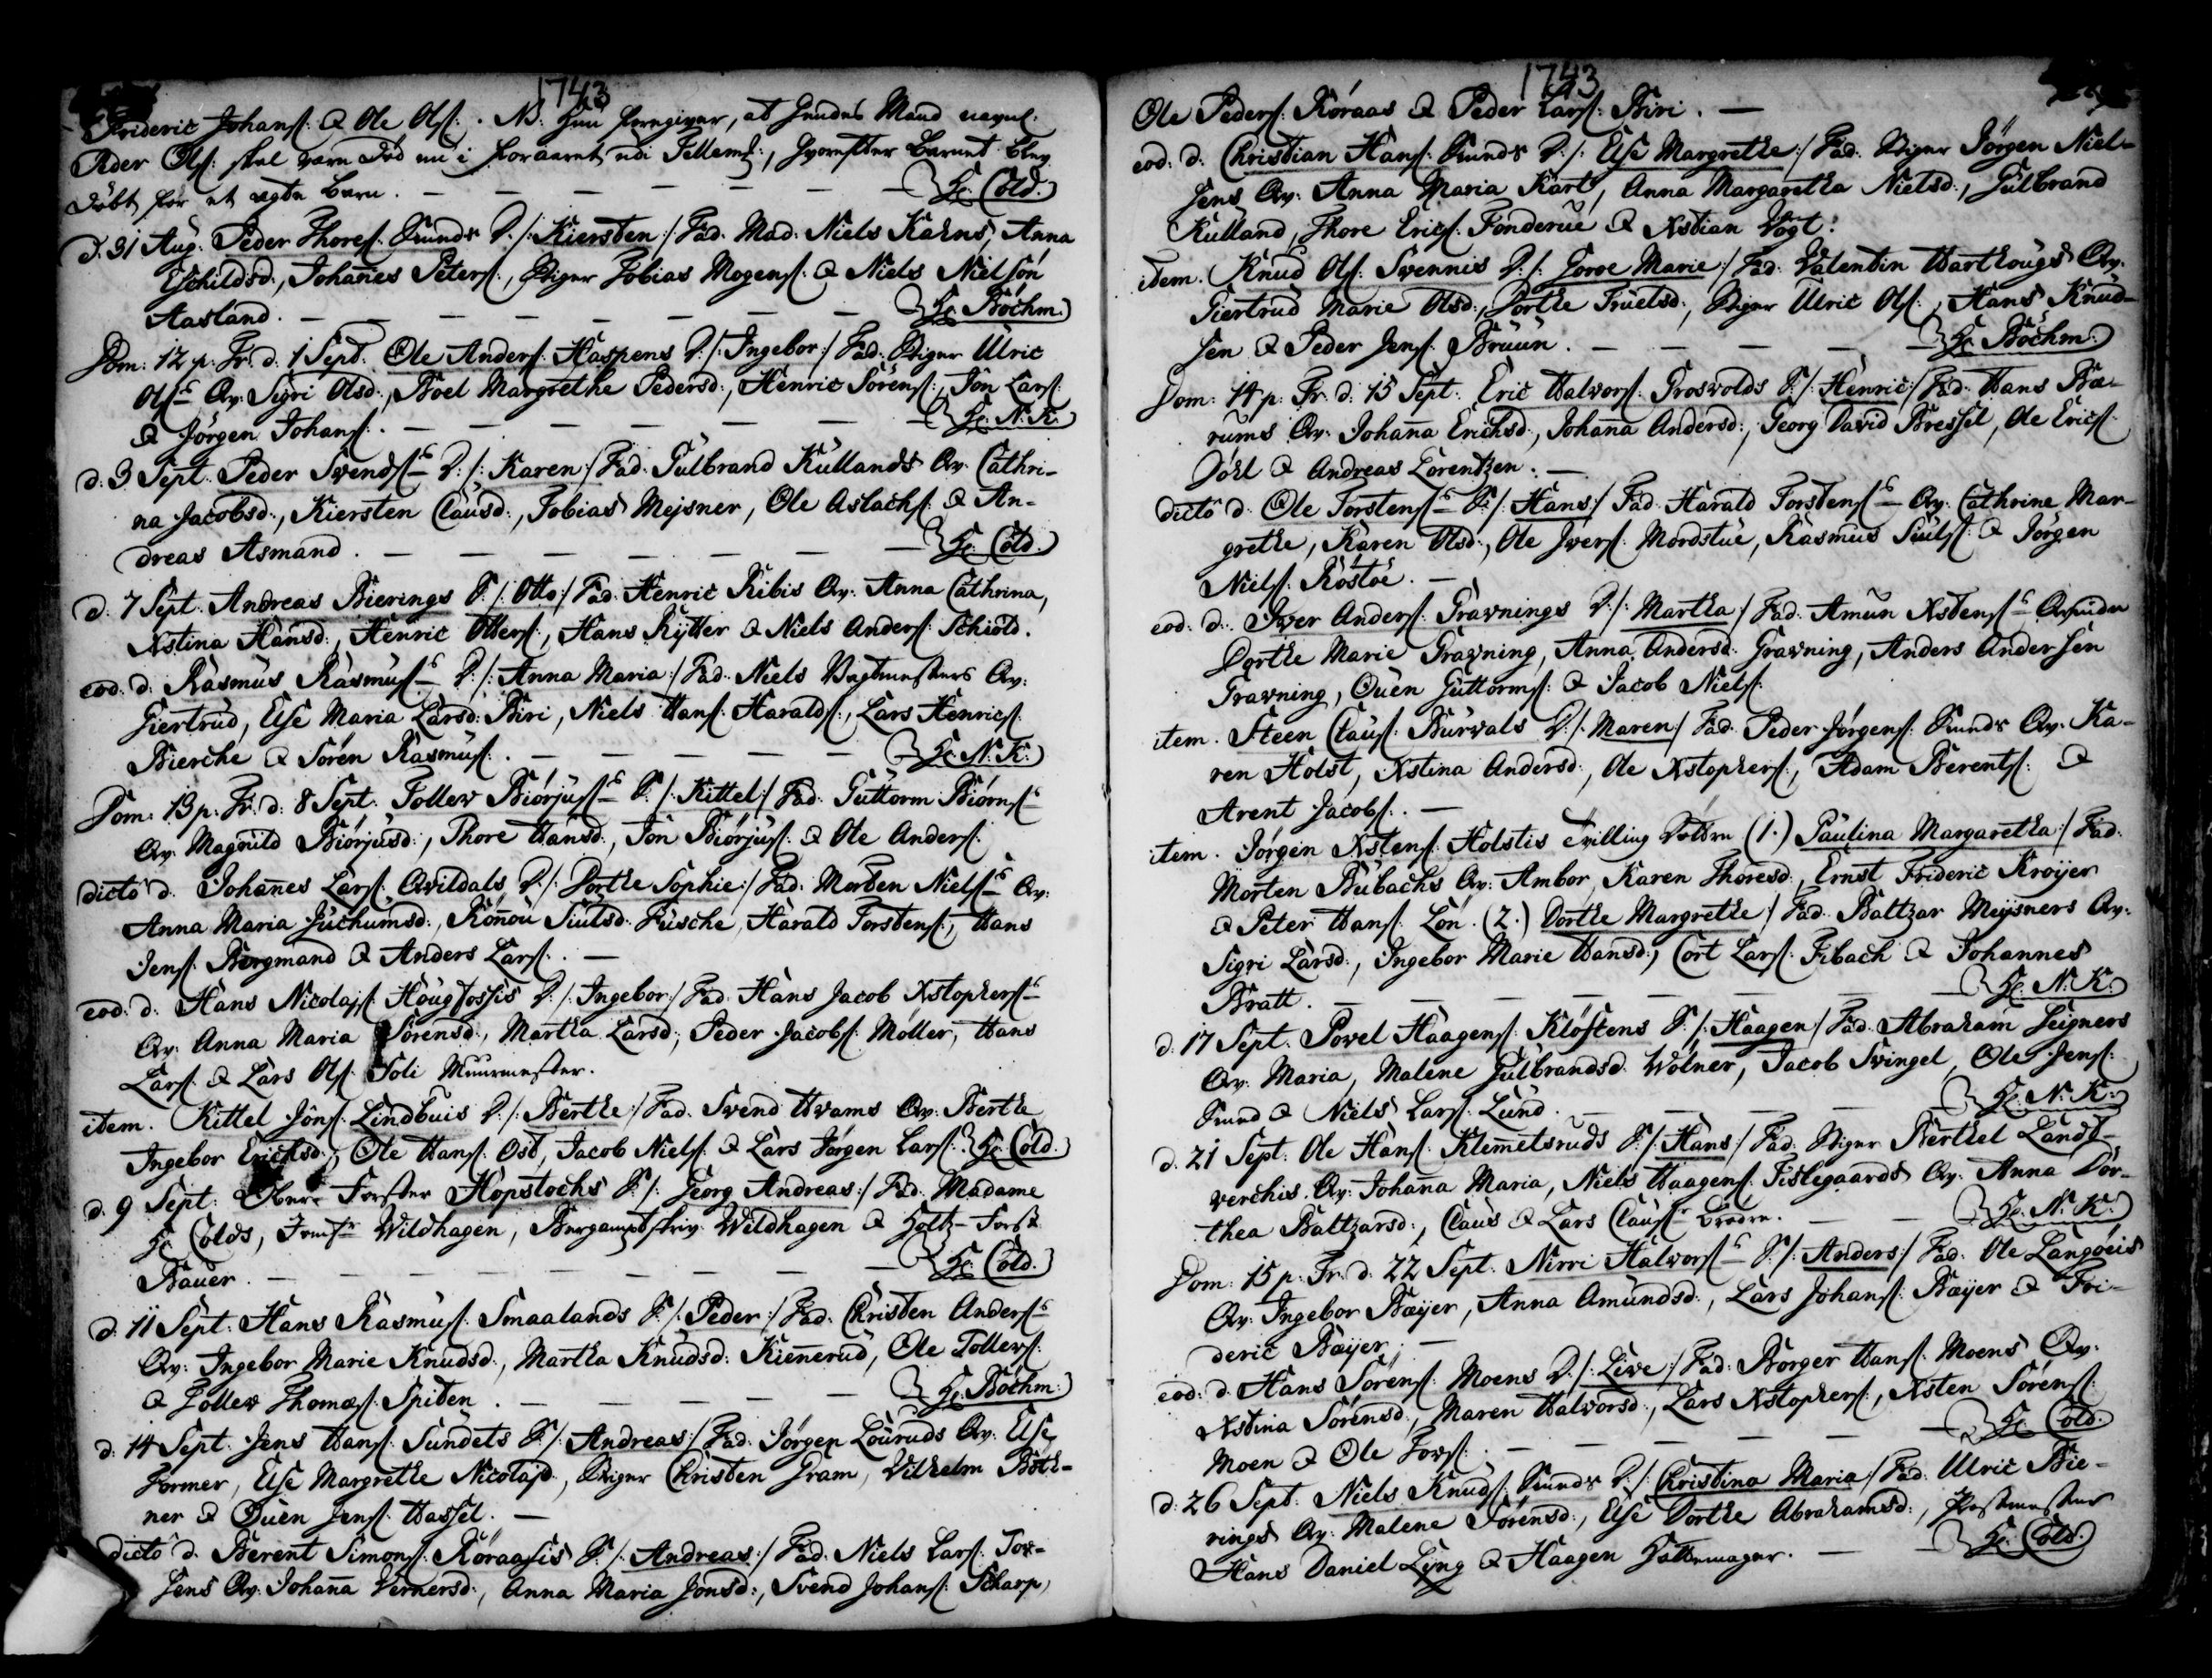 1743
Frideric Johans: & Ole Ols: . NB. hun foregiver, at hendes Mand navnl.
Peder Ols: skal være død nu i foraaret udi Tellem:, hvorefter Barnet blev
døbt før et ægte barn. — — — — — Hr. Cold.
d. 31 Aug. Peder Thores: Smeds D: /: Kiersten :/ Fad. Mad. Niels Kahns, Anna
Eschildsd:, Johannes Peters:, Stiger Tobias Mogens: & Niels Nielsön
Aasland. — — — — — — — Hr. Böchm.
Dom: 12 p. Tr. d. 1 Sept. Ole Anders: Haspens D: /: Ingebor :/ Fad. Stiger Ulric
Ols: Qv: Sigri Olsd:, Boel Margrethe Pedersd:, Henric Sörens:, Jön Lars:
& Jörgen Johans: . — — — — — — Hr. N. K.
d. 3 Sept. Peder Svends: D: /: Karen :/ Fad. Gulbrand Kullands Qv. Cathri-
na Jacobsd:, Kiersten Clausd:, Tobias Mejsner, Ole Aslachs: & An-
dreas Asmand. — — — — — — Hr. Cold.
d. 7 Sept. Andreas Bierings S: /: Otto :/ Fad. Henric Ribis Qv. Anna Cathrina,
Xstina Hansd:, Henric Otters:, Hans Rytter & Niels Anders: Schiöld.
eod. d. Rasmus Rasmus: D: /: Anna Maria :/ Fad. Niels Vagtmesters Qv:
Giertrud, Else Maria Larsd: Biri, Niels Hans: Haralds:, Lars Henrics:
Bierche & Sören Rasmus: . — — — — Hr. N. K.
Dom: 13 p. Tr. d. 8 Sept. Tollev Biörjus: S: /: Kittel :/ Fad. Guttorm Biörns:
Qv. Magnild Biörjusd:, Thore Hansd:, Jön Biörjus: & Ole Anders:
dicto d. Johannes Lars: Qvildals D: /: Dorthe Sophie :/ Fad. Morten Niels: Qv:
Anna Maria Juchumsd:, Rönnou Siulsd: Fusche, Harald Torstens:, Hans
Jens: Bergmand & Anders Lars: . —
eod. d. Hans Nicolajs: Hougfossis D: /: Ingebor :/ Fad. Hans Jacob Xstophers:
Qv. Anna Maria Sörensd:, Martha Larsd:, Peder Jacobs: Möller, Hans
Lars: & Lars Ols: Soli Muurmester.
item. Kittel Jöns: Lindbuis D: /: Berthe :/ Fad. Svend Hvams Qv. Berthe
Ingebor Erichsd:, Ole Hans: Ost, Jacob Niels: & Lars Jörgen Lars: Hr. Cold.
d. 9 Sept. Ober Forster Hopstochs S: /: Georg Andreas :/ Fad. Madame
Hr. Colds, Jomfr. Wildhagen, Bergamptskriv. Wildhagen & Holtz-Forst.
Bauer. — — — — — — — — Hr. Cold.
d. 11 Sept. Hans Rasmus: Smaalands S: /: Peder :/ Fad. Christen Anders:
Qv. Ingebor Marie Knudsd:, Martha Knudsd: Kiennerud, Ole Tollevs:
& Tollev Thomæs: Spiten. — — — — Hr. Böchm.
d. 14 Sept. Jens Hans: Sundets S: /: Andreas :/ Fad. Jörgen Louruds Qv. Else
Former, Else Margrethe Nicolajsd:, Stiger Christen Gram, Vilhelm Böth-
ner & Ouen Jens: Hassel. —
dicto d. Berent Simons: Röraasis S: /: Andreas :/ Fad. Niels Lars: Tor-
sens Qv. Johanna Vernersd:, Anna Maria Jonsd:, Svend Johans: Scharp,
1743
Ole Peders: Röraas & Peder Lars: Biri. —
eod: d: Christian Hans: Smeds D: /: Else Margrethe :/ Fad. Stiger Jörgen Niel-
sens Qv: Anna Maria Kart, Anna Margaretha Nielsd:, Gulbrand
Kulland, Thore Erics: Fonderue & Xstian Vogt:
item. Knud Ols: Svennis D: /: Torve Marie :/ Fad. Valentin Harthougs Qv.
Giertrud Marie Olsd:, Dorthe Truelsd:, Stiger Ulric Ols:, Hans Knud-
sen & Peder Jens: Bruun. — — — — — Hr. Böchm.
Dom: 14 p: Tr. d: 15 Sept. Eric Halvors: Trosvolds S: /: Henric :/ Fad. Hans Bæ-
rums Qv. Johanna Erichsd:, Johanna Andersd:, Georg David Bressel, Ole Erics:
Döhl & Andreas Lorentzen. —
dicto d. Ole Torstens: S: /: Hans :/ Fad. Harald Torstens: Qv. Cathrine Mar-
grethe, Karen Olsd:, Ole Ivers: Mordstue, Rasmus Siuls: & Jörgen
Niels: Röstöe. —
eod. d. Iver Anders: Gravnings D: /: Martha :/ Fad. Amun Xstens: Qvinde
Dorthe Marie Gravning, Anna Andersd: Gravning, Anders Andersen
Gravning, Ouen Guttorms: & Jacob Niels:
item. Steen Claus: Burvals D: /: Maren :/ Fad. Peder Jörgens: Smeds Qv. Ka-
ren Holst, Xstina Andersd:, Ole Xstophers:, Adam Berents: &
Arent Jacobs: . —
item. Jörgen Xstens: Holstis Tvilling Döttre (1.) Paulina Margaretha :/ Fad.
Morten Bubachs Qv. Ambor, Karen Thoresd:, Ernst Frideric Kröyer
& Peter Hans: Lön. (2.) Dorthe Margrethe :/ Fad. Baltzar Meysners Qv.
Sigri Larsd:, Ingebor Marie Hansd:, Cort Lars: Fibach & Johannes
Bratt. — — — — — — — Hr. N. K.
d. 17 Sept. Povel Haagens: Klöftens S: /: Haagen :/ Fad. Abraham Seigners
Qv. Maria, Malene Gulbrandsd: Wölner, Jacob Svingel, Ole Jens:
Smed & Niels Lars: Lund. — — — — Hr. N. K.
d. 21 Sept. Ole Hans: Klemmetsruds S: /: Hans :/ Fad. Stiger Berthel Landt-
verchis Qv. Johanna Maria, Niels Haagens: Tislegaards Qv. Anna Dor-
thea Baltzarsd:, Claus & Lars Claus: Brödre. — — Hr. N. K.
Dom: 15 p: Tr. d. 22 Sept. Nirri Halvors: S: /: Anders :/ Fad. Ole Langöeis
Qv. Ingebor Bæyer, Anna Amundsd:, Lars Johans: Bæyer & Fri-
deric Bæyer. —
eod: d. Hans Sörens: Moens D: /: Live :/ Fad. Borger Hans: Moens Qv.
Xstina Sörensd:, Maren Halvorsd:, Lars Xstophers:, Xsten Sörens:
Moen & Ole Tors: . — — — — — Hr. Cold.
d. 26 Sept. Niels Knuds: Smeds D: /: Christina Maria :/ Fad. Ulric Bie-
rings Qv. Malene Sörensd:, Else Dorthe Abrahamsd:, Postmester
Hans Daniel Lyng & Haagen Hattemager. — Hr. Cold.